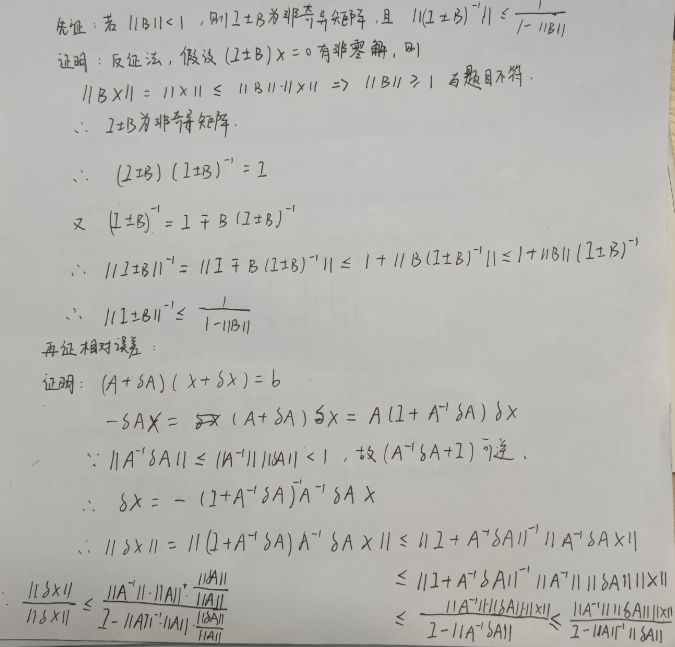 先证：若 ||B||<1，则 I±B为非奇异矩阵，且 ||(I±B)⁻¹|| ≤ 1/(1-||B||)
证明：反证法，假设 (I±B)x=0有非零解，则
||Bx|| = ||x|| ≤ ||B||·||x|| => ||B|| ≥ 1 与题目不符.
∴ I±B为非奇异矩阵.
∴ (I±B)(I±B)⁻¹ = I
又 (I±B)⁻¹ = I ∓ B(I±B)⁻¹
∴ ||I±B||⁻¹ = ||I ∓ B(I±B)⁻¹|| ≤ 1+||B(I±B)⁻¹|| ≤ 1+||B||(I±B)⁻¹
∴ ||I±B||⁻¹ ≤ 1/(1-||B||)
再证相对误差：
证明：(A+δA)(x+δx)=b
-δAx = (A+δA)δx = A(I+A⁻¹δA)δx
∵ ||A⁻¹δA|| ≤ ||A⁻¹|| ||δA|| <1，故(A⁻¹δA+I)可逆.
∴ δx = -(I+A⁻¹δA)⁻¹A⁻¹δAx
∴ ||δx|| = ||(I+A⁻¹δA)A⁻¹δAx|| ≤ ||I+A⁻¹δA||⁻¹ ||A⁻¹δAx||
≤ ||I+A⁻¹δA||⁻¹ ||A⁻¹|| ||δA|| ||x||
≤ (||A⁻¹|| ||δA|| ||x||)/(I-||A⁻¹δA||) ≤ (||A⁻¹|| ||δA|| ||x||)/(I-||A||⁻¹||δA||)
∴ ||δx||/||δx|| ≤ (||A⁻¹||·||A||·||δA||/||A||)/(I-||A||⁻¹·||A||·||δA||/||A||)